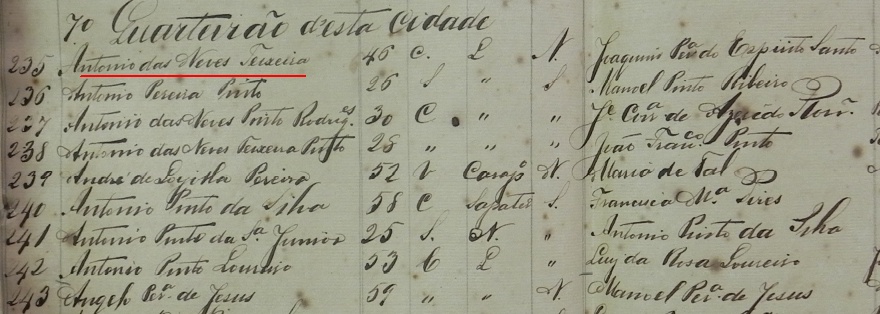 7º Quarteirão desta Cidade
235 Antonio das Neves Teixeira 46 C. L N. Joaquim Per.ª do Espirito Santo
236 Antonio Pereira Pinto 26 S " S Manoel Pinto Ribeiro
237 Antonio das Neves Pinto Rodrig.es 30 C " " de
238 Antonio das Neves Teixeira Pinto 28 " " " João Fran.co Pinto
239 André de Pereira 52 V N. Maria de Tal
240 Antonio Pinto da Silva 58 C Sapatr.º S. Francisca M.ª Pires
241 Antonio Pinto da S.ª Junior 25 S. N. " Antonio Pinto da Silva
242 Antonio Pinto Loureiro 53 C L " Luiz da Rosa Loureiro
243 Angelo Per.ª de Jesus 59 " " N. Manoel Per.ª de Jesus